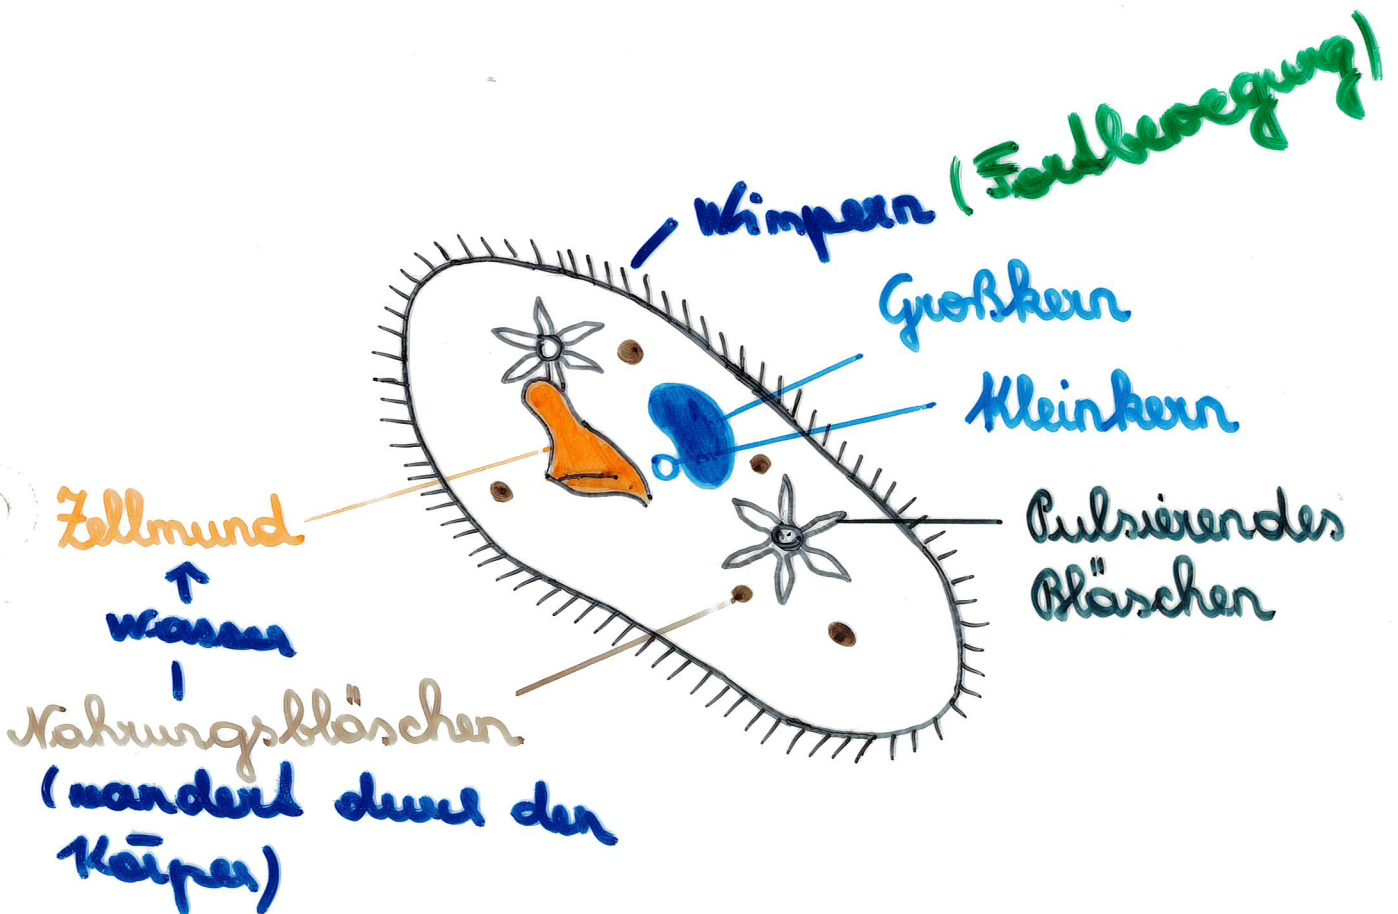 Wimpern (Fortbewegung)
Großkern
Kleinkern
Pulsierendes
Bläschen
Zellmund
Wasser
Nahrungsbläschen
(wandert durch den
Körper)